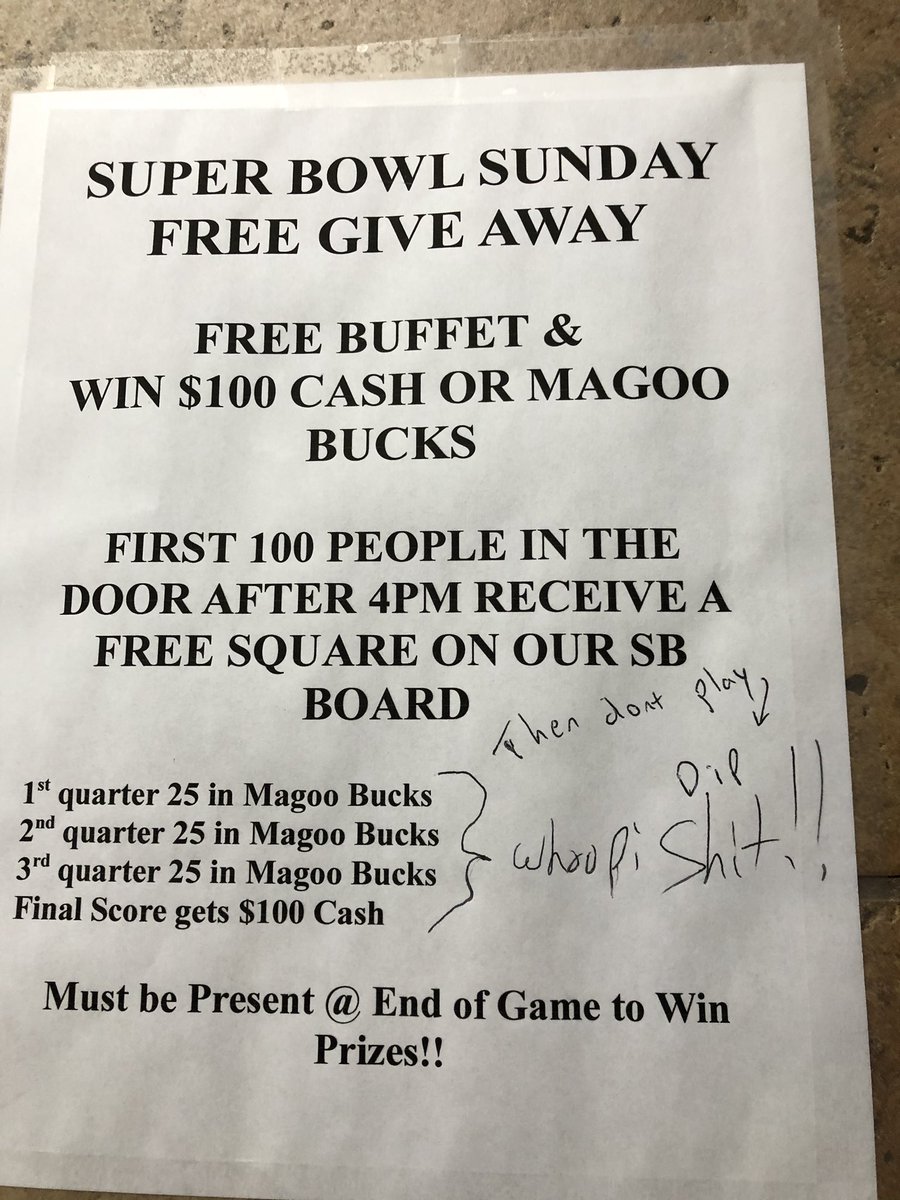 SUPER BOWL SUNDAY
FREE GIVE AWAY
FREE BUFFET &
WIN $100 CASH OR MAGOO
BUCKS
FIRST 100 PEOPLE IN THE
DOOR AFTER 4PM RECEIVE A
FREE SQUARE ON OUR SB
BOARD
Then dont play
Dip
1st quarter 25 in Magoo Bucks
2nd quarter 25 in Magoo Bucks
3rd quarter 25 in Magoo Bucks
Final Score gets $100 Cash
whoopi Shit!!
Must be Present @ End of Game to Win
Prizes!!